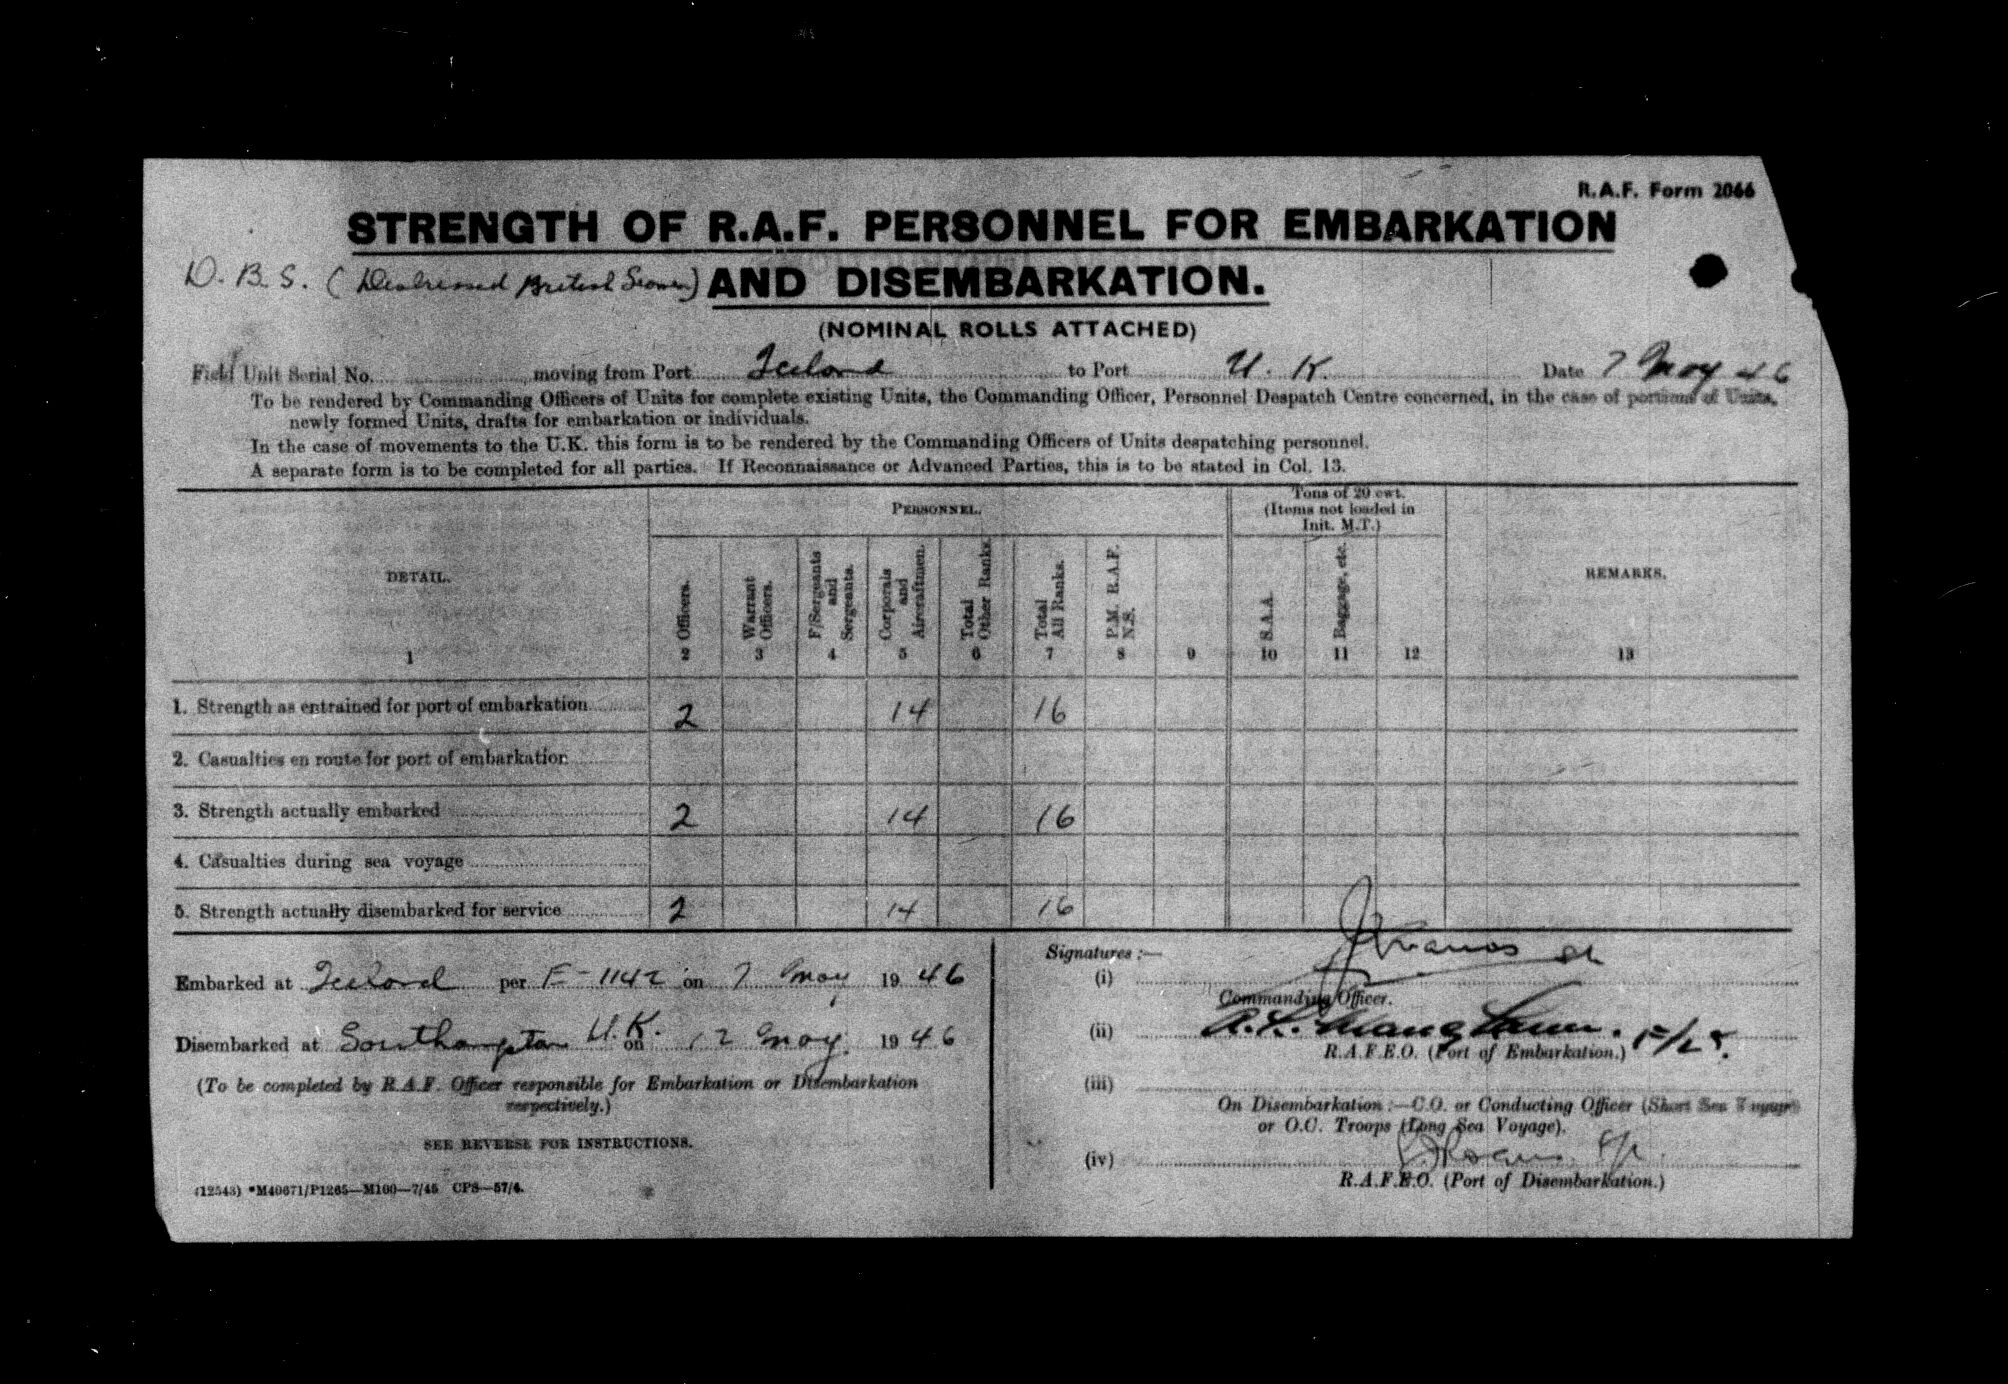 R.A.F. Form 2066
STRENGTH OF R.A.F. PERSONNEL FOR EMBARKATION
D.B.S. (Distressed British Seamen) AND DISEMBARKATION.
(NOMINAL ROLLS ATTACHED)
Field Unit Serial No. moving from Port Iceland to Port U.K. Date 7 May 46
To be rendered by Commanding Officers of Units for complete existing Units, the Commanding Officer, Personnel Despatch Centre concerned, in the case of portions of Units,
newly formed Units, drafts for embarkation or individuals.
In the case of movements to the U.K. this form is to be rendered by the Commanding Officers of Units despatching personnel.
A separate form is to be completed for all parties. If Reconnaissance or Advanced Parties, this is to be stated in Col. 13.
PERSONNEL.
Tons of 20 cwt.
(Items not loaded in
Init. M.T.)
DETAIL.
Officers.
Warrant Officers.
F/Sergeants and Sergeants.
Corporals and Aircraftmen.
Total Other Ranks.
Total All Ranks.
P.M. R.A.F. N.S.
S.A.A.
Baggage, etc.
REMARKS.
1 2 3 4 5 6 7 8 9 10 11 12 13
1. Strength as entrained for port of embarkation 2 14 16
2. Casualties en route for port of embarkation
3. Strength actually embarked 2 14 16
4. Casualties during sea voyage
5. Strength actually disembarked for service 2 14 16
Embarked at Iceland per F-1142 on 7 May 1946
Disembarked at Southampton U.K. on 12 May. 1946
(To be completed by R.A.F. Officer responsible for Embarkation or Disembarkation
respectively.)
SEE REVERSE FOR INSTRUCTIONS.
(12543) *M40671/P1265—M100—7/45 CPS—57/4.
Signatures :—
(i)
Commanding Officer.
(ii) F/Lt.
R.A.F.E.O. (Port of Embarkation.)
(iii)
On Disembarkation :—C.O. or Conducting Officer (Short Sea Voyage)
or O.C. Troops (Long Sea Voyage).
(iv)
R.A.F.E.O. (Port of Disembarkation.)